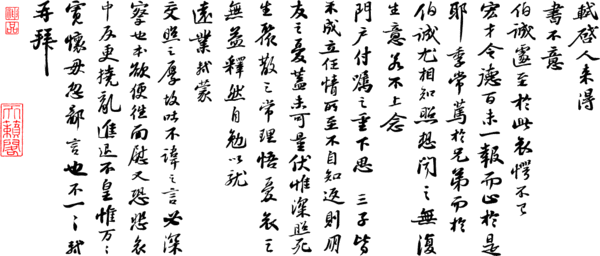 軾啓人來得
書不意
伯誠遽至於此哀愕不已
宏才令德百未一報而止於是
耶季常篤於兄弟而於
伯誠尤相知照想聞之無復
生意若不上念
門戶付囑之重下思三子皆
不成立任情所至不自知返則朋
友之憂蓋未可量伏惟深照死
生聚散之常理悟憂哀之
無益釋然自勉以就
遠業軾蒙
交照之厚故吐不諱之言必深
察也本欲便往面慰又恐悲哀
中反更撓亂進退不皇惟萬〻
寬懷毋忽鄙言也不一〻軾
再拜